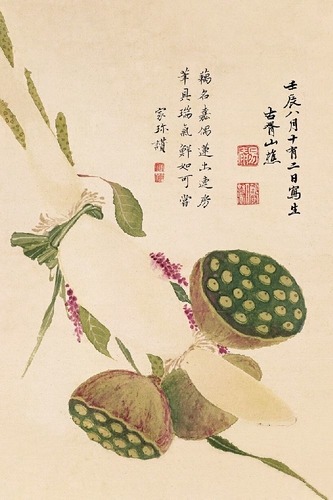 壬辰八月十有二日寫生
古脊山樵
藕名嘉偶蓮出連房
華具瑞氣鮮如可嘗
家珎讃